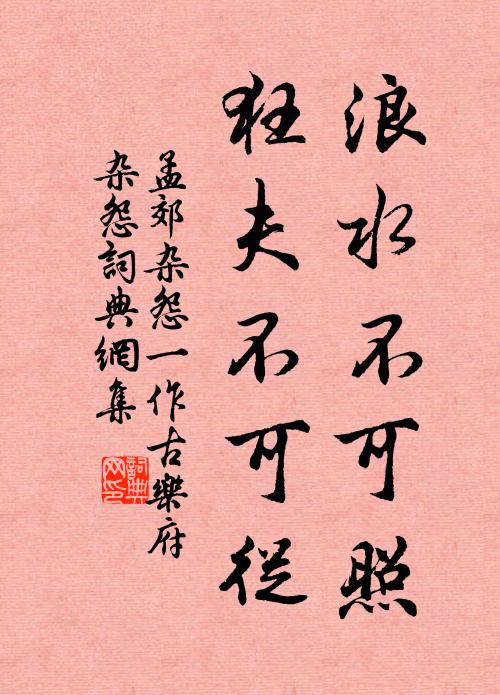 浪水不可照
狂夫不可從
孟郊杂怨一作古樂府
杂怨詞典網集
詞典网印